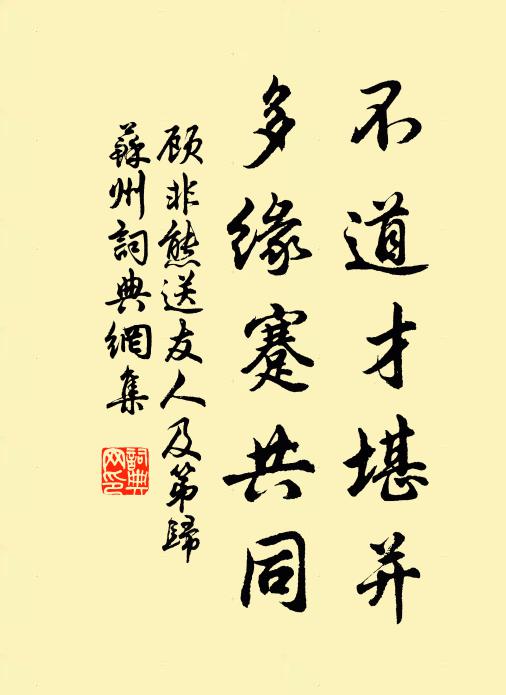 不道才堪并
多缘蹇共同
顾非熊送友人及第歸
蘇州詞典網集
詞典
网印